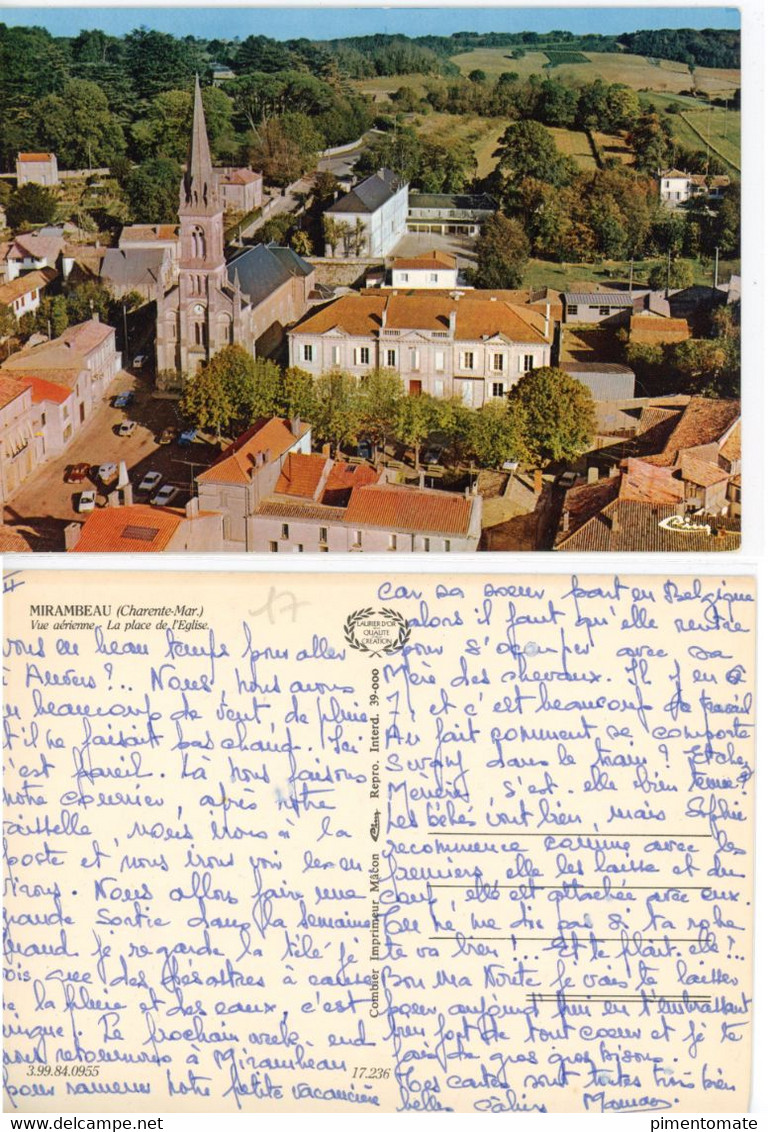 Cim
4
MIRAMBEAU (Charente-Mar.)
Vue aérienne. La place de l'Eglise.
17
LAURIER D'OR
QUALITÉ
CRÉATION
vous eu beau temps pour aller
à Anvers ?... Nous, nous avons
eu beaucoup de vent, de pluie
et il ne faisait pas chaud. Ici
c'est pareil. Là nous faisons
notre courrier, après notre
vaisselle, nous irons à la
poste et nous irons voir les en
virons. Nous allons faire une
grande sortie dans la semaine
Quand je regarde la télé je
vois que des désastres à cause
de la pluie et des eaux, c'est
. Le prochain week-end
nous retournons à Mirambeau
pour ramener notre petite vacancière
3.99.84.0955
17.236
Combier Imprimeur Mâcon Cim Repro. Interd. 39-000
car sa soeur part en Belgique
alors il faut qu'elle rentre
pour s'occuper avec sa
Mère des chevaux. Il y en a
7, et c'est beaucoup de travail
Au fait comment se comporte
dans le train ? Et chez
s'est-elle bien tenue ?
Les bébés vont bien, mais Sophie
recommence comme avec les
premiers elle les laisse et du
coup, elle est attachée avec eux.
Tu ne me dis pas si ta robe
te va bien !... Et te plait-elle ?...
Bon Ma je vais te laisser
pour aujourd'hui en t'embrassant
bien fort de tout coeur et je te
fais de gros gros bisous.
Tes cartes sont toutes très bien
belles Maman
pimentomate